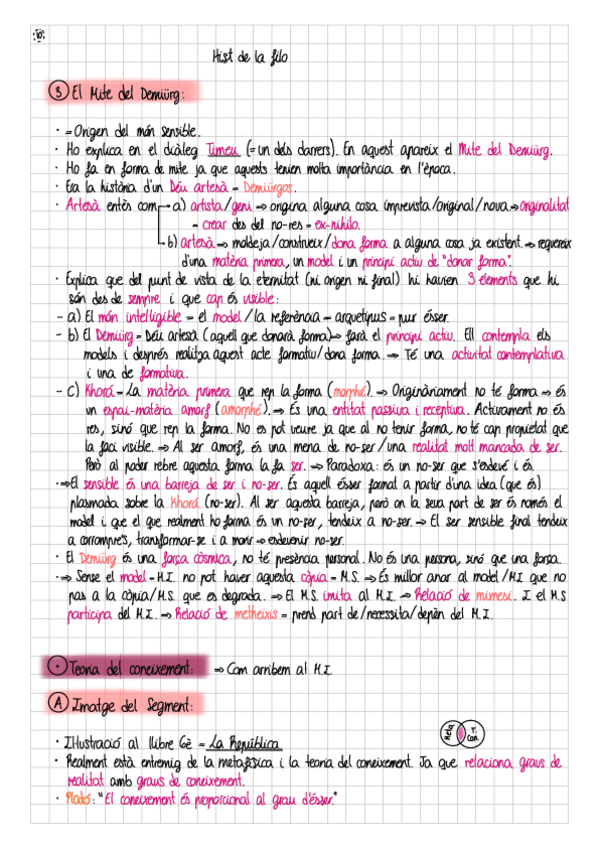 10
Hist de la filo
3 El Mite del Demiürg:
· = Origen del món sensible.
· Ho explica en el diàleg Timeu (= un dels darrers). En aquest apareix el Mite del Demiürg.
· Ho fa en forma de mite ja que aquests tenien molta importància en l'època.
· Era la història d'un Déu artesà = Demiürgos.
· Artesà entès com a) artista/geni ⇒ origina alguna cosa imprevista/original/nova ⇒ originalitat
= crear des del no-res = ex-nihilo.
b) artesà ⇒ moldeja/construeix/dona forma a alguna cosa ja existent. ⇒ requereix
d'una matèria primera, un model i un principi actiu de "donar forma".
· Explica que del punt de vista de la eternitat (ni origen ni final) hi havien 3 elements que hi
són des de sempre i que cap és visible:
- a) El món intel·ligible = el model/la referència = arquetipus = pur ésser.
- b) El Demiürg = Déu artesà (aquell que donarà forma) ⇒ farà el principi actiu. Ell contempla els
models i després realitza aquest acte formatiu/dona forma. ⇒ Té una activitat contemplativa
i una de formativa.
- c) Khorá = La matèria primera que rep la forma (morphé). ⇒ Originàriament no té forma ⇒ és
un espai-matèria amorf (amorphé). ⇒ És una entitat passiva i receptiva. Activament no és
res, sinó que rep la forma. No es pot veure ja que al no tenir forma, no té cap propietat que
la faci visible. ⇒ Al ser amorf, és una mena de no-ser/una realitat molt mancada de ser.
Però al poder rebre aquesta forma la fa ser. ⇒ Paradoxa: és un no-ser que s'esdevé i és.
· ⇒ El sensible és una barreja de ser i no-ser. És aquell ésser format a partir d'una idea (que és)
plasmada sobre la Khorá (no-ser). Al ser aquesta barreja, però on la seva part de ser és només el
model i que el que realment ho forma és un no-ser, tendeix a no-ser. ⇒ El ser sensible final tendeix
a corrompre's, transformar-se i a morir ⇒ esdevenir no-ser.
· El Demiürg és una força còsmica, no té presència personal. No és una persona, sinó que una força.
· ⇒ Sense el model = M.I. no pot haver aquesta còpia = M.S. ⇒ És millor anar al model/M.I que no
pas a la còpia/M.S. que es degrada. ⇒ El M.S. imita al M.I. ⇒ Relació de mimesi. I el M.S
participa del M.I. ⇒ Relació de metheixis = prend part de/necessita/depèn del M.I.
· Teoria del coneixement: ⇒ Com arribem al M.I.
A Imatge del Segment:
· Il·lustració al llibre 6è = La República
Meta T. Con.
· Realment està entremig de la metafísica i la teoria del coneixement. Ja que relaciona graus de
realitat amb graus de coneixement.
· Plató: "El coneixement és proporcional al grau d'ésser."